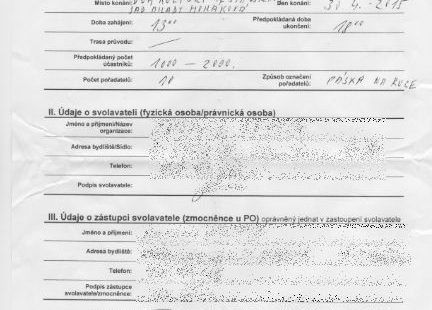 Místo konání: SAD MILADY HORÁKOVÉ Den konání: 30.4.-2015
Doba zahájení: 13⁰⁰ Předpokládaná doba ukončení: 18⁰⁰
Trasa průvodu: —
Předpokládaný počet účastníků: 1000 – 2000.
Počet pořadatelů: 10 Způsob označení pořadatelů: PÁSKA NA RUCE
II. Údaje o svolavateli (fyzická osoba/právnická osoba)
Jméno a příjmení/Název organizace:
Adresa bydliště/Sídlo:
Telefon:
Podpis svolavatele:
III. Údaje o zástupci svolavatele (zmocněnce u PO) oprávněný jednat v zastoupení svolavatele
Jméno a příjmení:
Adresa bydliště:
Telefon:
Podpis zástupce svolavatele/zmocněnce: